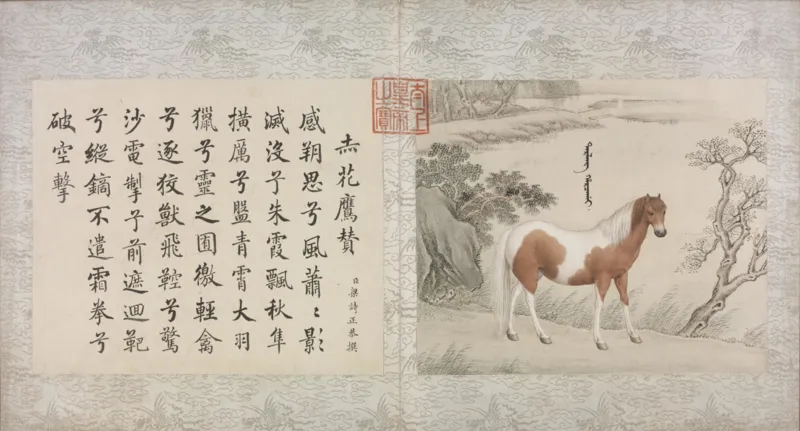 赤花鷹贊
臣梁詩正恭撰
感朔思兮風蕭〻影
滅沒兮朱霞飄秋隼
橫厲兮盤青霄大羽
獵兮靈之囿徼輕禽
兮逐狡獸飛鞚兮驚
沙電掣兮前遮迴範
兮縱鏑不遣霜拳兮
破空擊